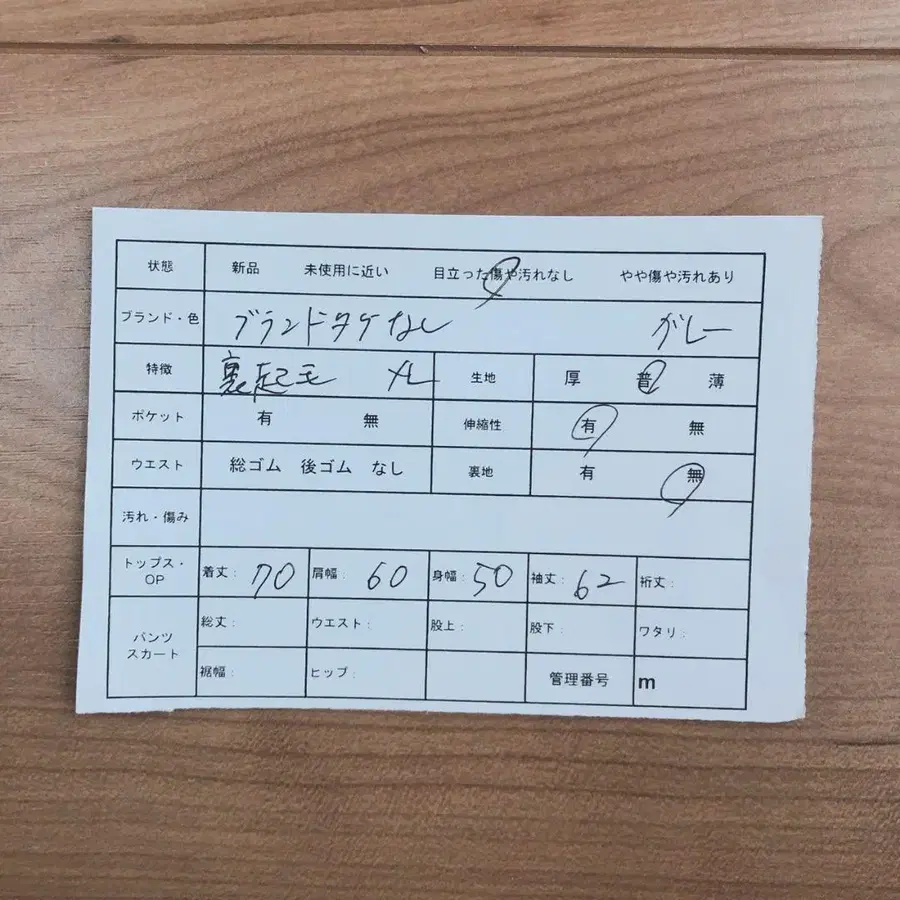 状態 新品 未使用に近い 目立った傷や汚れなし やや傷や汚れあり
ブランド・色 ブランドタグなし グレー
特徴 裏起毛 生地 厚 普 薄
ポケット 有 無 伸縮性 有 無
ウエスト 総ゴム 後ゴム なし 裏地 有 無
汚れ・傷み
トップス・OP 着丈: 70 肩幅: 60 身幅: 50 袖丈: 62 裄丈:
パンツ スカート 総丈: ウエスト: 股上: 股下: ワタリ:
裾幅: ヒップ: 管理番号 m